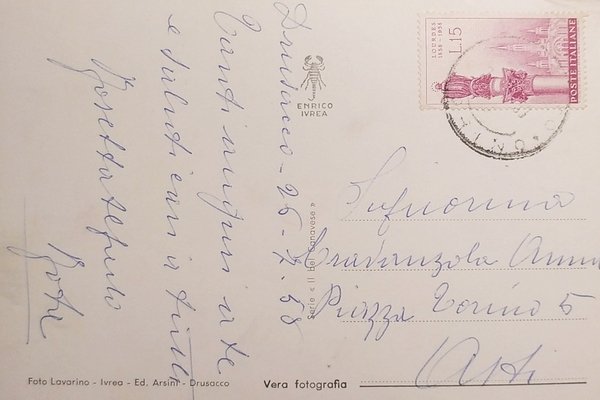 Drusacco - 26-7-58
Tanti auguri a te
e saluti cari a tutti
Rosetta
Signorina
Anna
Piazza Torino 5
Asti
ENRICO
IVREA
Serie « Il bel Canavese »
LOURDES
1858-1958
L.15
POSTE ITALIANE
Foto Lavarino - Ivrea - Ed. Arsini - Drusacco
Vera fotografia